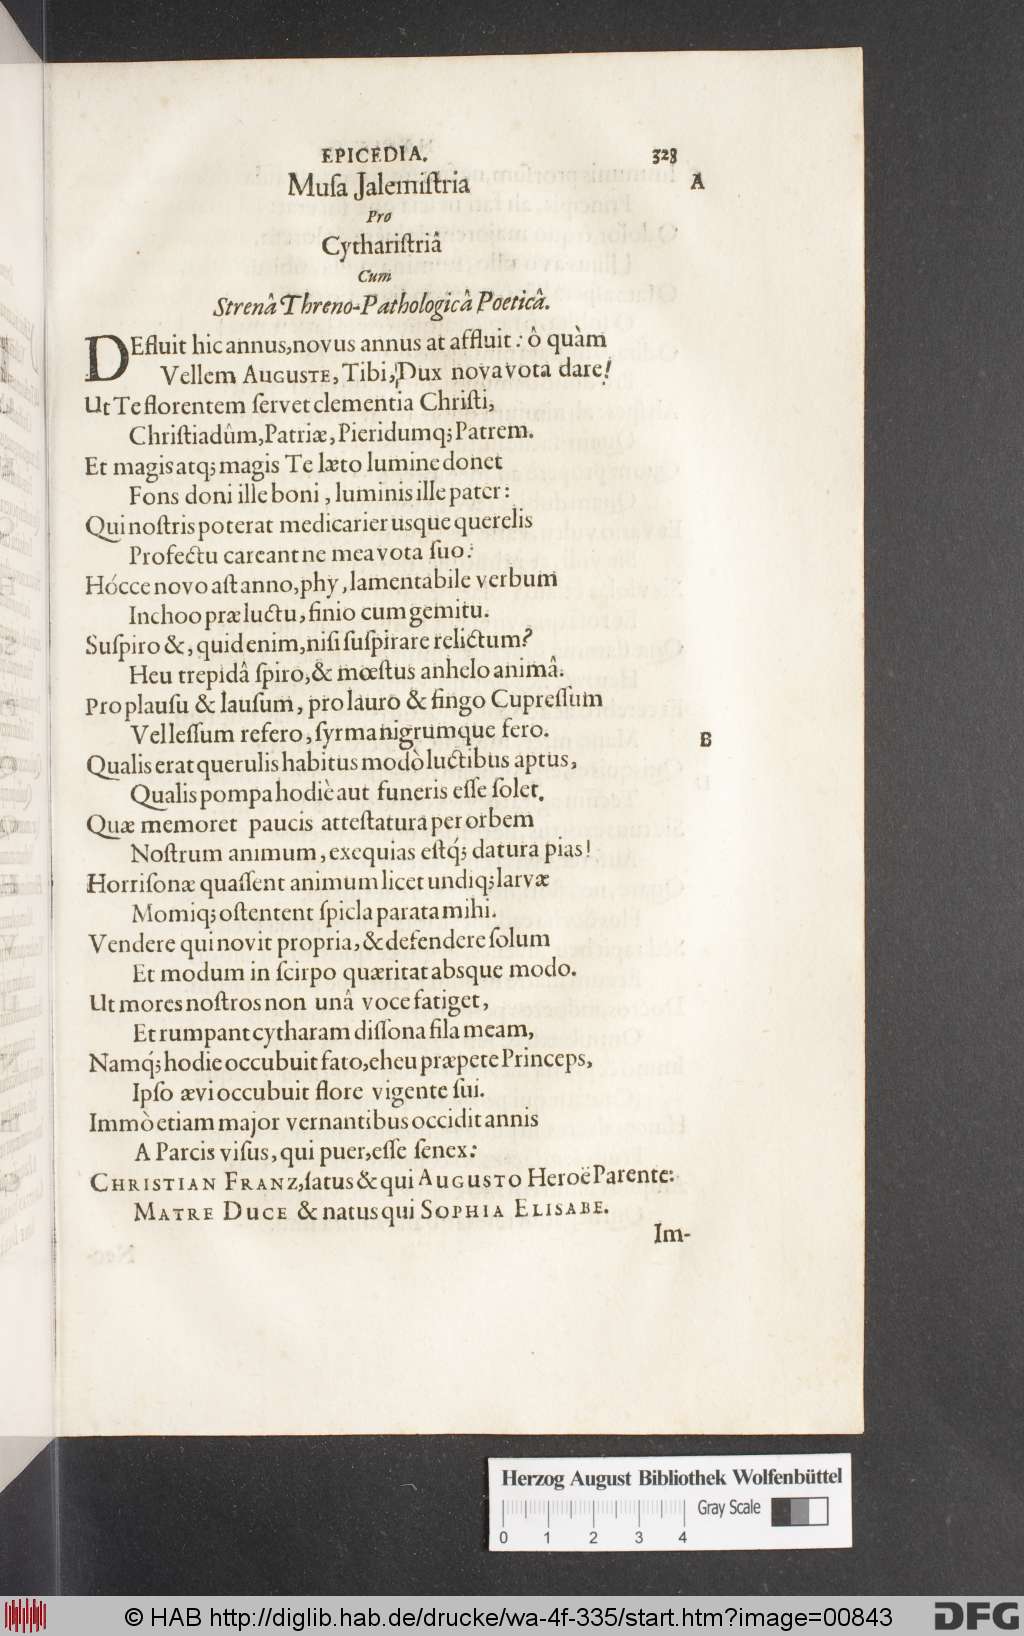 EPICEDIA. 328
Muſa Jalemiſtria A
Pro
Cythariſtriâ
Cum
Strenâ Threno-Pathologicâ Poeticâ.
DEfluit hic annus, novus annus at affluit: ô quàm
Vellem AUGUSTE, Tibi, Dux nova vota dare!
Ut Te florentem ſervet clementia Chriſti,
Chriſtiadûm, Patriæ, Pieridumq; Patrem.
Et magis atq; magis Te læto lumine donet
Fons doni ille boni, luminis ille pater:
Qui noſtris poterat medicarier usque querelis
Profectu careant ne mea vota ſuo:
Hócce novo aſt anno, phy, lamentabile verbum
Inchoo præ luctu, finio cum gemitu.
Suſpiro &, quid enim, niſi ſuſpirare relictum?
Heu trepidâ ſpiro, & mœſtus anhelo animâ.
Pro plauſu & lauſum, pro lauro & fingo Cupreſſum
Velleſſum refero, ſyrma nigrumque fero. B
Qualis erat querulis habitus modò luctibus aptus,
Qualis pompa hodiè aut funeris eſſe ſolet.
Quæ memoret paucis atteſtatura per orbem
Noſtrum animum, exequias eſtq́; datura pias!
Horriſonæ quaſſent animum licet undiq; larvæ
Momiq; oſtentent ſpicla parata mihi.
Vendere qui novit propria, & defendere ſolum
Et modum in ſcirpo quæritat absque modo.
Ut mores noſtros non unâ voce fatiget,
Et rumpant cytharam diſſona fila meam,
Namq́; hodie occubuit fato, eheu præpete Princeps,
Ipſo ævi occubuit flore vigente ſui.
Immò etiam major vernantibus occidit annis
A Parcis viſus, qui puer, eſſe ſenex:
CHRISTIAN FRANZ, ſatus & qui AUGUSTO Heroë Parente:
MATRE DUCE & natus qui SOPHIA ELISABE.
Im-
Herzog August Bibliothek Wolfenbüttel
Gray Scale
0 1 2 3 4
© HAB http://diglib.hab.de/drucke/wa-4f-335/start.htm?image=00843
DFG